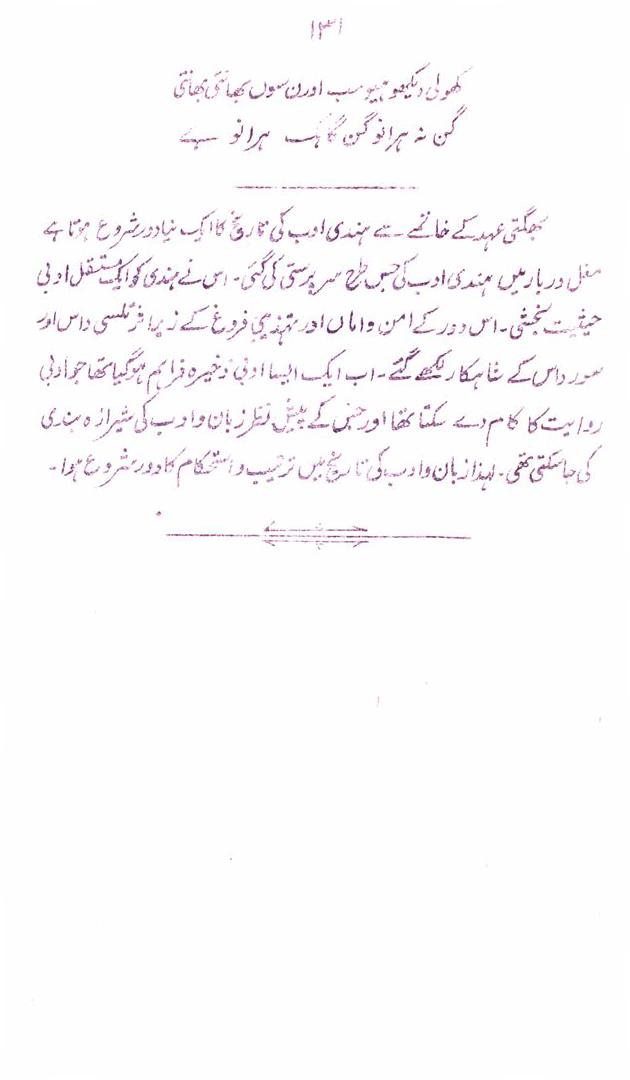 ۱۳۱
کھولی دیکھو ہیو سب اورن سوں بھانتی بھانتی
گن نہ ہرانو گن گاہک ہرانو ہے
بھگتی عہد کے خاتمے سے ہندی ادب کی تاریخ کا ایک نیا دور شروع ہوتا ہے
مغل دربار میں ہندی ادب کی جس طرح سرپرستی کی گئی۔ اس نے ہندی کو ایک مستقل ادبی
حیثیت بخشی۔ اس دور کے امن و اماں اور تہذیبی فروغ کے زیر اثر تلسی داس اور
سور داس کے شاہکار لکھے گئے۔ اب ایک ایسا ادبی ذخیرہ فراہم ہو گیا تھا جو ادبی
روایت کا کام دے سکتا تھا اور جس کے پیش نظر زبان و ادب کی شیرازہ بندی
کی جا سکتی تھی۔ لہذا زبان و ادب کی تاریخ میں ترتیب و استحکام کا دور شروع ہوا۔